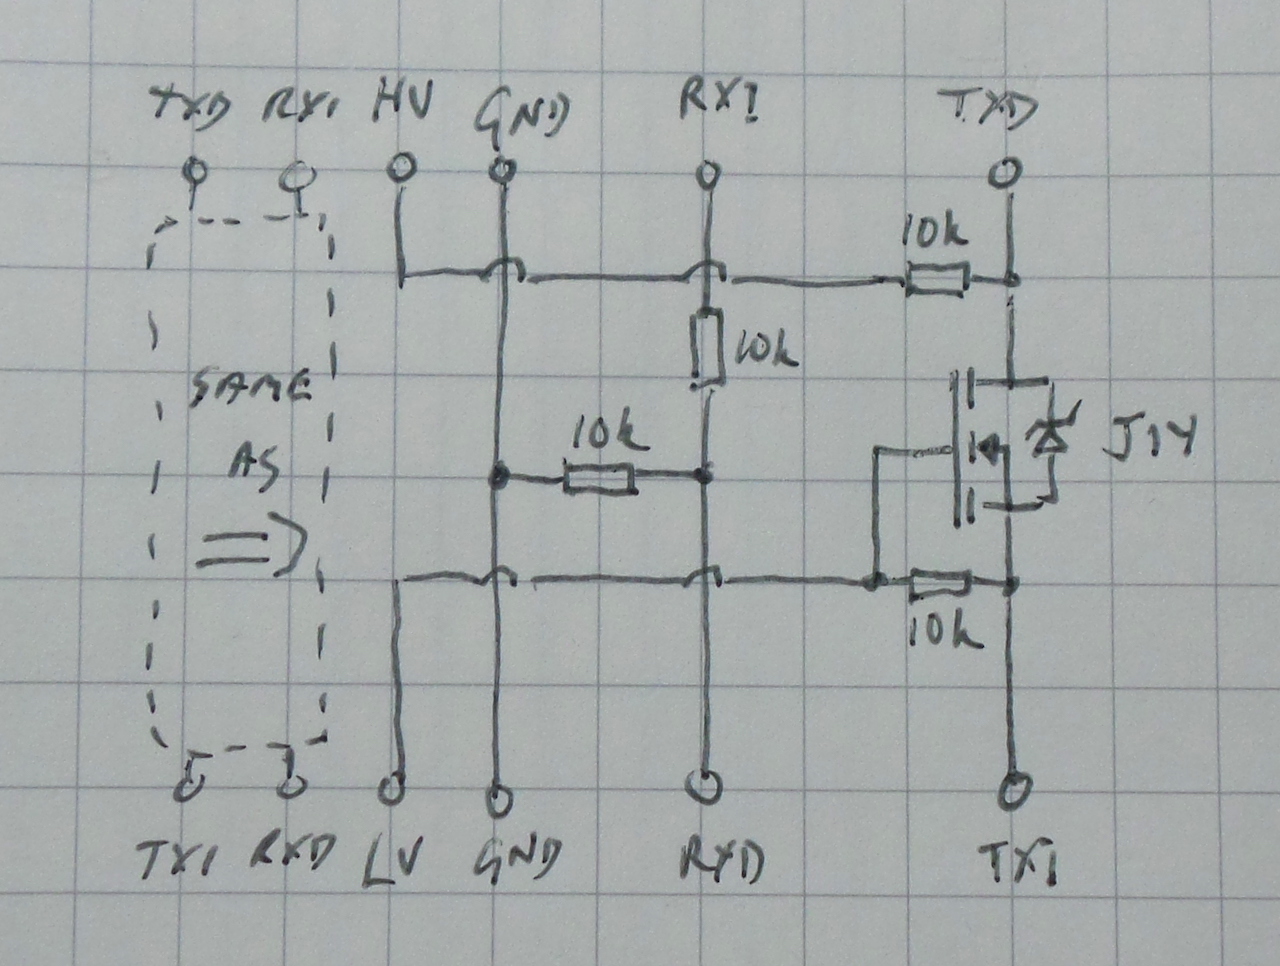 TXD RX1 HV GND RX1 TXD
10k
10k
SAME
10k
J1Y
AS
10k
TX1 RXD LV GND RXD TX1